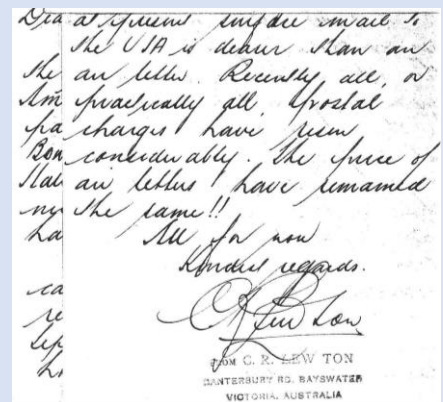 at present surface mail to
the USA is dearer than an
air letter. Recently all, or
practically all postal
charges have risen
considerably. The price of
air letters have remained
the same!!
All for now
Kindest regards.
C R Lew Ton
FROM C. R. LEW TON
CANTERBURY RD. BAYSWATER
VICTORIA, AUSTRALIA